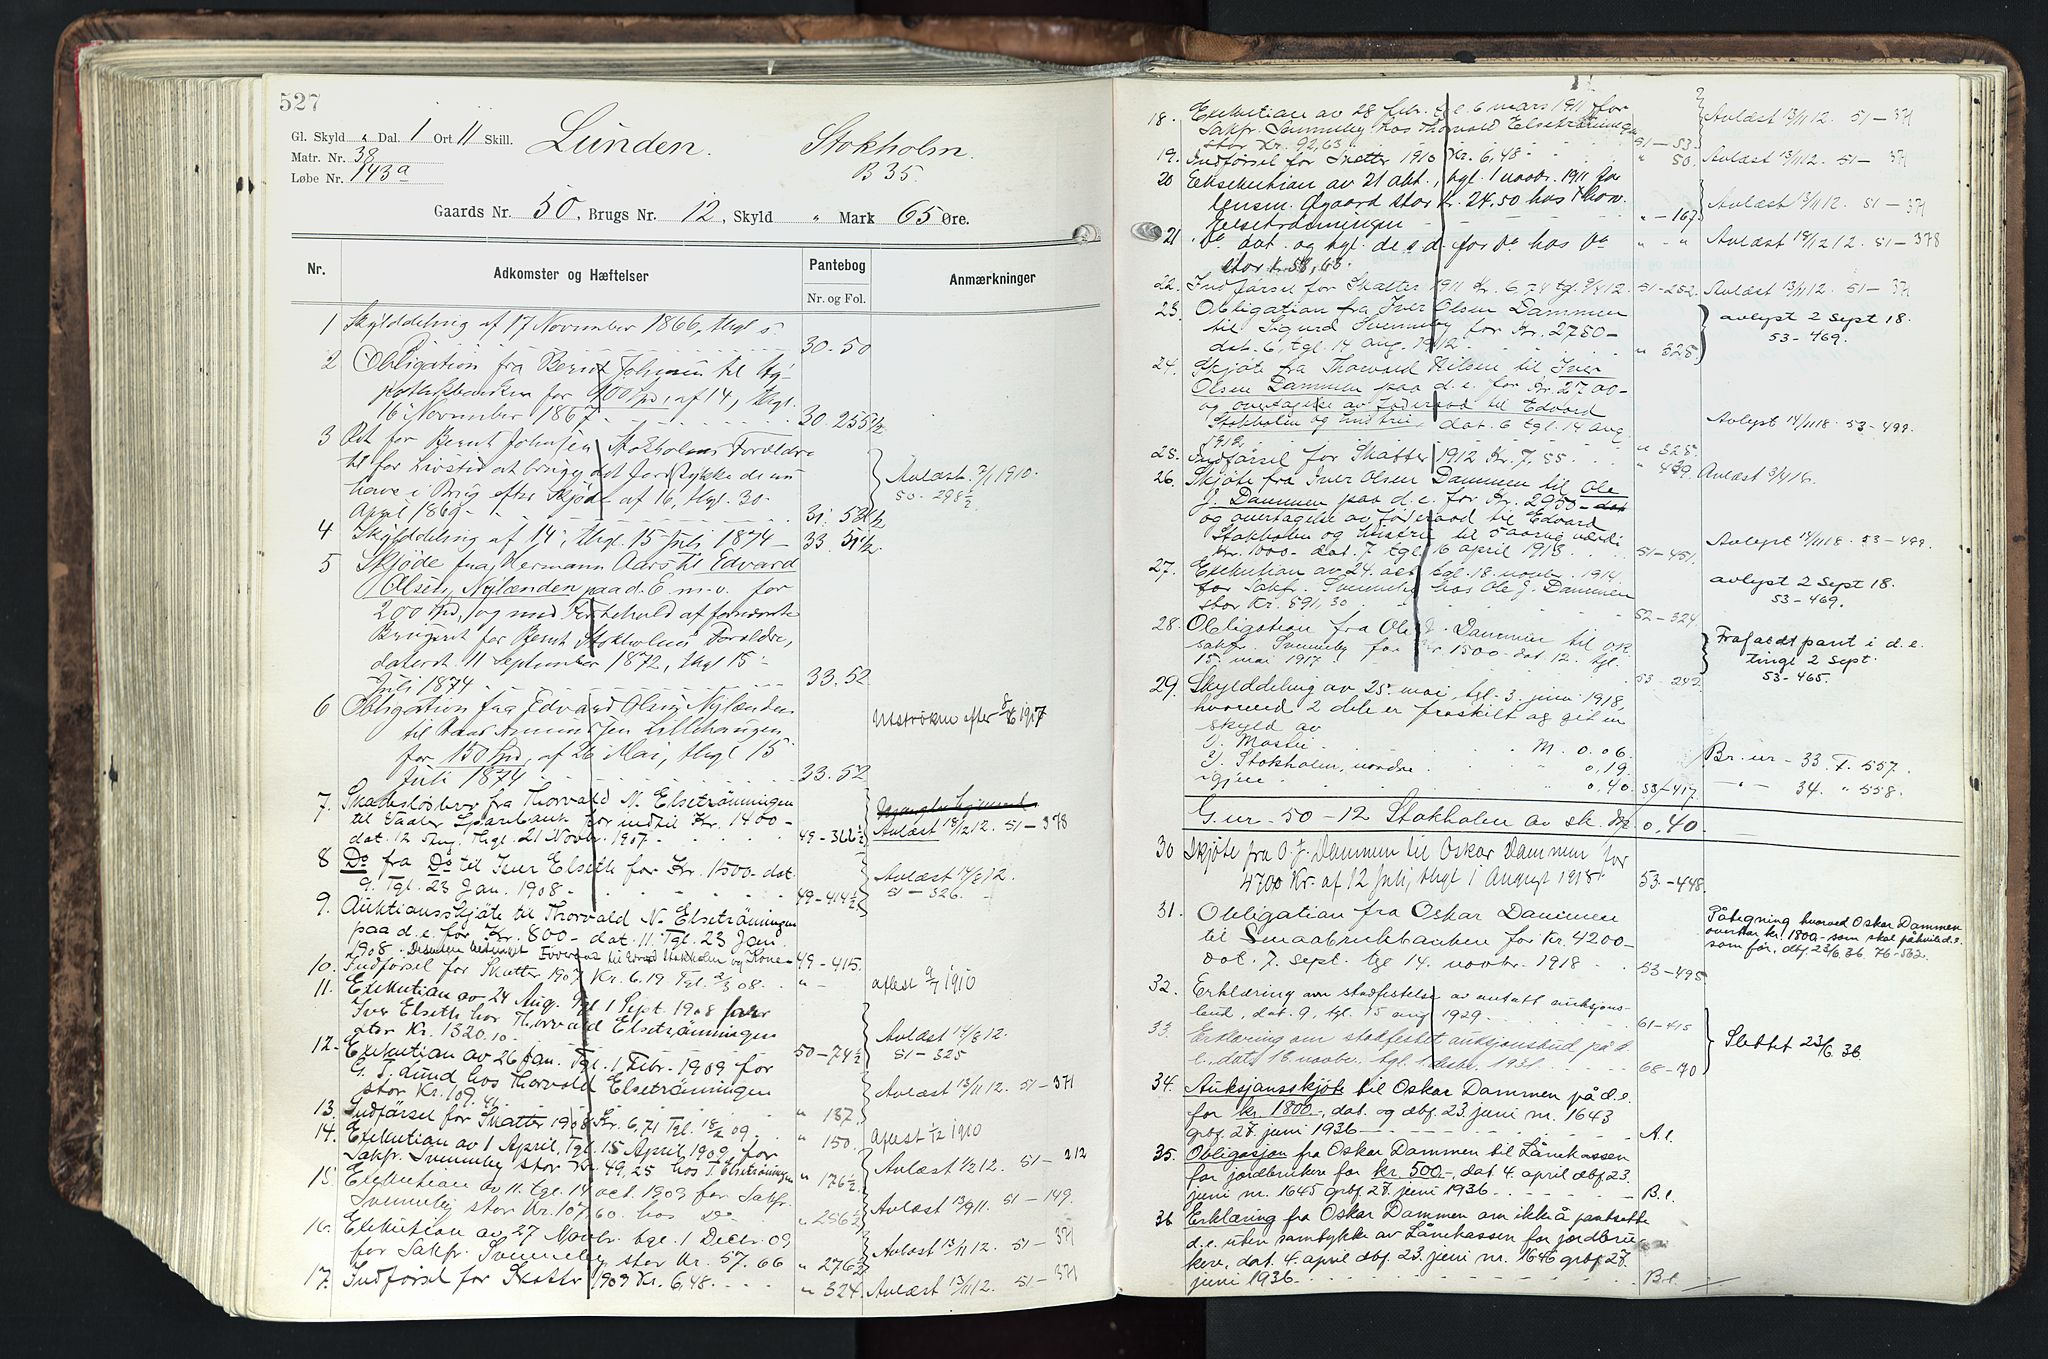 527
Gl. Skyld „ Dal. 1 Ort 11 Skill. Lunden. Stokholm.
Matr. Nr. 38 B 35
Løbe Nr. 143a
Gaards Nr. 50, Brugs Nr. 12, Skyld „ Mark 65 Øre.
Nr. Adkomster og Hæftelser Pantebog Anmærkninger
Nr. og Fol.
1 Skylddeling af 17 November 1866, thgl. 5
30. 50
2 Obligation fra Bernt Johnsen til Hy-
pothekbanken for 400 Spd, af 14, thgl.
16 November 1867. 30. 255 1/2
3 Ret for Bernt Johnsen Stokholms Forældre
til for Livstid at bruge det Jordstykke de nu
have i Brug efter Skjøde af 16, thgl. 30 Avlæst 7/1 1910.
April 1869 - 31. 53 1/2 50. 298 1/2
4 Skylddeling af 14, thgl. 15 Juli 1874 33 51 1/2
5 Skjøde fra Hermann Aars til Edvard
Olsen Nylænden paa d. E. m. v. for
200 Spd, og med Forbehold af fornævnte
Brugsret for Bernt Stokholms Forældre,
dateret 11 September 1872, thgl 15
Juli 1874. 33. 52
6 Obligation fra Edvard Olsen Nylænden
til Aamundsen Lillehaugen Utstrøken efter 1917
for 150 Spd, af 26 Mai, thgl 15
Juli 1874 33. 52
7. Skadesløsbrev fra Thorvald N. Elsetrønningen
til Vaaler Sparebank for indtil Kr. 1400- Avlæst 18/12 12. 51-378
dat. 12 Aug. thgl. 21 Novbr. 1907. 49-362 1/2
8 Do fra Do til Iver Elseth for Kr. 1500- dat Avlæst 17/8 12.
9. Tgl. 23 Jan. 1908. 49-414 1/2 51-326.
9. Auktionsskjøte til Thorvald N. Elsetrønningen
paa d. e. for Kr. 800- dat. 11. Tgl. 23 Jan.
1908. Desuten betinget Foeraad til Edvard Stokholm og Kone 49-415.
10. Indførsel for Skatter 1907 Kr. 6.19 Tgl. 2/3 08. „ - aflest 9/7 1910
11. Exekution av 24 Aug. tgl 1 Sept 1908 for
Iver Elseth hos Thorvald Elsetrønningen Avlæst 17/8 12.
stor Kr. 1320.10 50-74 1/2 51-325
12. Exekution av 26 Jan. Tgl. 1 Febr. 1909 for
G. T. Lund hos Thorvald Elsetrønningen Avlæst 13/11 12. 51-371
stor Kr. 109.41 „ 137.
13. Indførsel for Skatter 1908 Kr. 6,71 Tgl. 18/2 09. „ 150. Aflest 1/12 1910
14. Exekution av 1 April, Tgl. 15 April 1909, for
Sakfr. Svenneby stor Kr. 49,25 hos T. Elsetrønningen „ 176 1/2 Avlæst 1/2 12. 51-212
15. Exekution av 11. tgl. 14 oct. 1909 for Sakfr.
Svenneby stor Kr. 107.60. hos Do „ 256 1/2 Avlæst 13/9 11. 51-149.
16. Exekution av 27 Novbr. tgl. 1 Decbr. 09
for Sakfr. Svenneby stor Kr. 57.66 „ 276 1/2 Avlæst 13/11 12. 51-371
17. Indførsel for Skatter 1909 Kr. 6,48. „ 324. Avlæst 13/11 12. 51-371
18. Exekution av 28 febr. tgl. 6 mars 1911 for
Sakfr. Svenneby hos Thorvald Elsetrønningen Avlæst 13/11 12. 51-371
stor Kr. 92,63 51-53.
19. Indførsel for Skatter 1910 Kr. 6,48 „ 50. Avlæst 13/11 12. 51-371
20 Eksekution av 21 okt., tgl. 1 novbr. 1911 for
lensm. Ogaard stor Kr. 24.50 hos Thorv. Avlæst 13/11 12. 51-371
Jelsetrønningen „ - 167
21 Do dat. og tgl. d. s. d. for Do hos Do „ - „ Avlæst 18/12 12. 51-378
stor kr. 58,63.
22. Indførsel for Skatter 1911 Kr. 6.74 tgl. 9/8 12. 51-282. Avlæst 13/11 12. 51-371
23. Obligation fra Iver Olsen Dammen avlyst 2 Sept 18.
til Sigurd Svenneby for Kr. 2750- 53-469.
dat. 6, tgl. 14 aug. 1912. „ 325.
24. Skjøte fra Thorvard Nilsen til Iver
Olsen Dammen paa d. e. for Kr. 2700-
og overtagelse av Føderaad til Edvard
Stokholm og hustru, dat. 6 tgl. 14 aug. Avlyst 14/11 18. 53-499.
1912 „ 325.
25. Indførsel for Skatter 1912 Kr. 7,55 „ 439. Avlæst 3/4 16.
26. Skjøte fra Iver Olsen Dammen til Ole
J. Dammen paa d. e. for Kr. 2950-
og overtagelse av Føderaad til Edvard
Stokholm og hustru til 5 aarig værdi
Kr. 1000- dat. 7 tgl. 16 april 1913. 51-451. Avlyst 14/11 18. 53-499.
27. Exekution av 24. oct tgl. 18. novbr. 1914. avlyst 2 Sept 18.
for Sakfr. Svenneby hos Ole J. Dammen 53-469.
stor Kr. 591,30 52-324
28. Obligation fra Ole J. Dammen til o.r. Frafaldt pant i d. e.
sakfr. Svenneby for Kr 1500- dat 12. tgl. tingl 2 Sept.
15. mai 1917. 53-242 53-465.
29. Skylddeling av 25. mai, tgl. 3. juni 1918,
hvorved 2 dele er fraskilt og git en
skyld av
1. Mostie M. 0.06 Br. nr - 33. F. 557.
1. Stokholm, nordre „ 0,19 -"- 34. „ 558.
igjen „ 0,40 53-417.
G. nr. 50-12 Stokholm av sk. M. 0,40.
30 Skjøte fra O. J. Dammen til Oskar Dammen for
4700 Kr. af 12 Juli, thgl 1 August 1918. 53-448.
31. Obligation fra Oskar Dammen Påtegning hvorved Oskar Dammen
til Smaabrukbanken for Kr. 4200- overtar kr. 1800.- som skal påhvile d. e.
dat. 7. sept. tgl 14. novbr. 1918 53-495 som før, dbf. 23/6 36. 76-562.
32. Erklæring om stadfestelse av antatt auksjons-
bud, dat. 9, tgl. 15 aug 1929. 61-415
33. Erklæring om stadfestet auksjonsbud på d. Slettet 23/6 36.
e., dat. 18. novbr. tgl. 1 desbr. 1931. 68-70
34. Auksjonsskjøte til Oskar Dammen på d. e.
for kr. 1800.-, dat. og dbf. 23. juni nr. 1643
grbf. 27. juni 1936. A.l.
35. Obligasjon fra Oskar Dammen til Lånekassen
for jordbrukere for kr. 500.-, dat 4. april dbf. 23.
juni nr. 1645 grbf. 27. juni 1936. B.l.
36 Erklæring fra Oskar Dammen om ikke å pantsette
d. e. uten samtykke av Lånekassen for jordbru-
kere, dat. 4. april dbf. 23. juni nr. 1646 grbf. 27.
juni 1936. B.l.